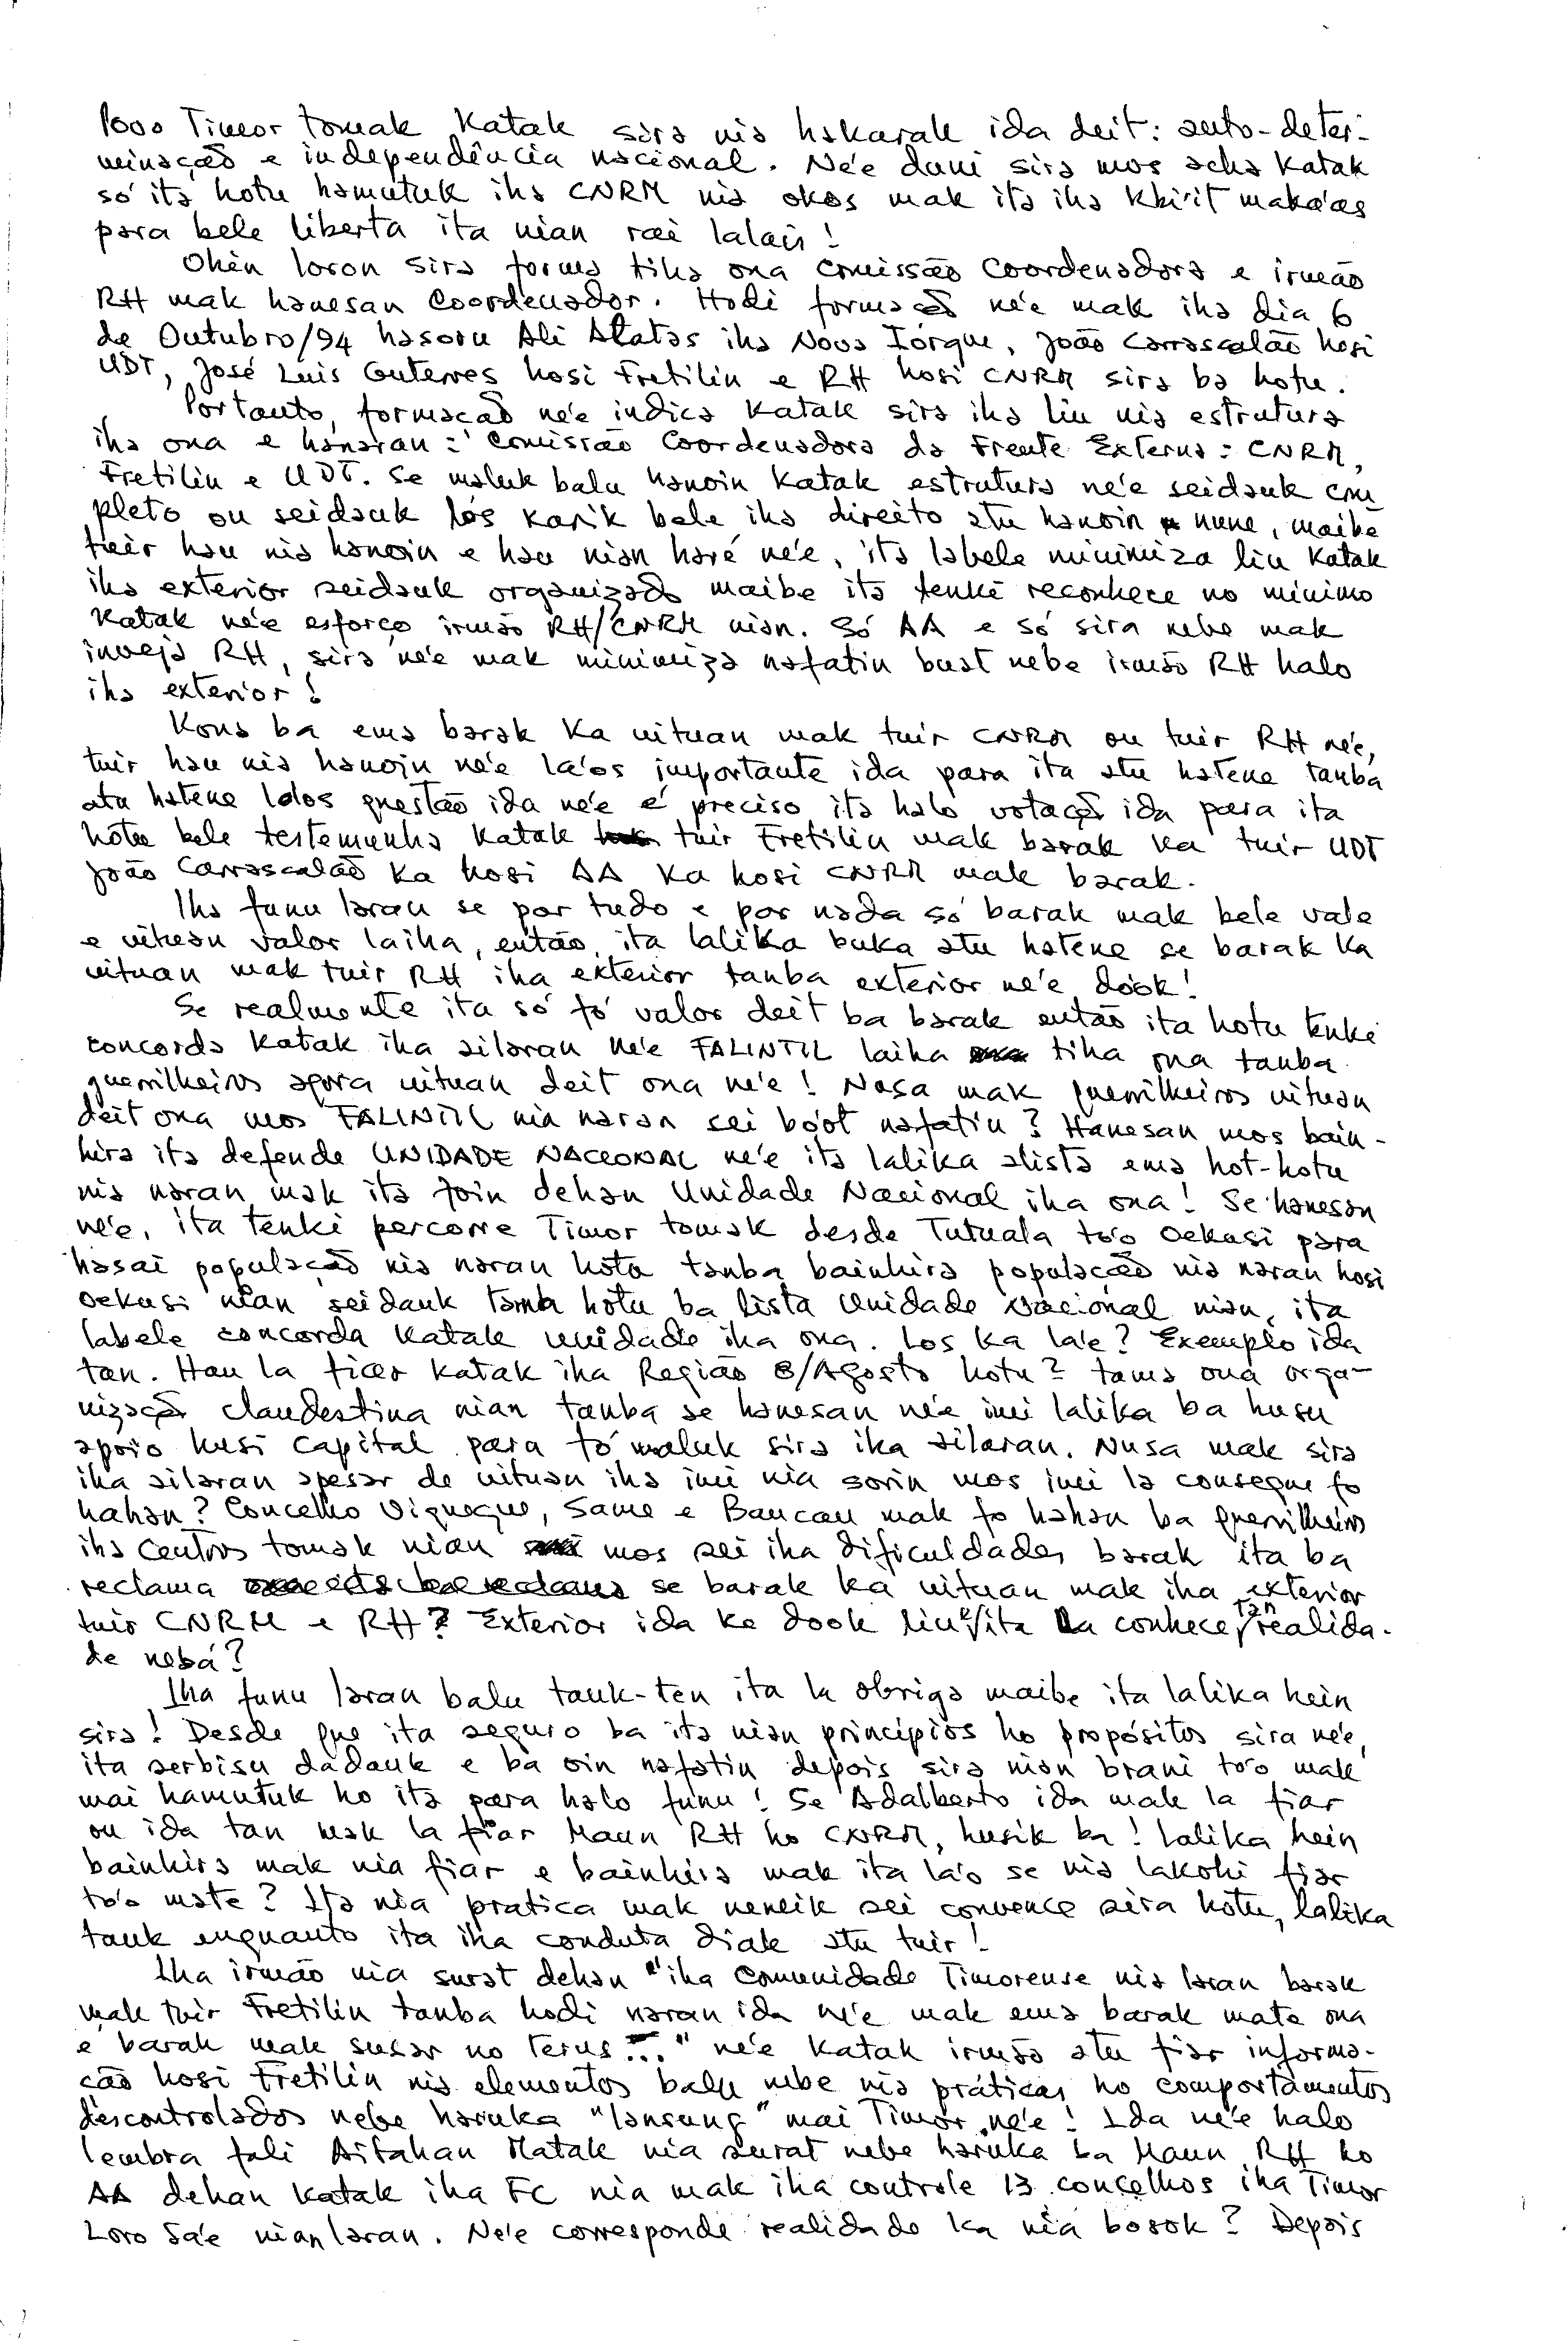 povo Timor tomak katak sira nia hakarak ida deit: auto-deter-
minação e independência nacional. Né'e duni sira mos acha katak
só ita hotu hamutuk iha CNRM nia okos mak ita iha kbi'it maka'as
para bele liberta ita nian rai lalais!
Ohin loron sira forma tiha ona Comissão Coordenadora e irmão
RH mak hanesan Coordenador. Hodi formação né'e mak iha dia 6
de Outubro/94 hasoru Ali Alatas iha Nova Iorque, João Carrascalão hosi
UDT, José Luis Guterres hosi Fretilin e RH hosi CNRM sira ba hotu.
Portanto, formação né'e indica katak sira iha liu nia estrutura
iha ona e hanaran: Comissão Coordenadora da Frente Externa: CNRM,
Fretilin e UDT. Se maluk balu hanoin katak estrutura né'e seidauk com
pleto ou seidauk lós karik bele iha direito atu hanoin nune, maibe
tuir hau nia hanoin e hau nian haré né'e, ita labele minimiza liu katak
iha exterior seidauk organizado maibe ita tenki reconhece no minimo
katak né'e esforço irmão RH/CNRM nian. Só AA e só sira nebe mak
inveja RH, sira né'e mak minimiza nafatin buat nebe irmão RH halo
iha exterior!
Kona ba ema barak ka uituan mak tuir CNRM ou tuir RH né'e,
tuir hau nia hanoin né'e la'os importante ida para ita atu hatene tanba
atu hatene lolos questão ida né'e é preciso ita halo votação ida para ita
hotu bele testemunha katak tuir Fretilin mak barak ka tuir UDT
João Carrascalão ka hosi AA ka hosi CNRM mak barak.
Iha funu laran se por tudo e por nada só barak mak bele vale
e uituan valor laiha, então, ita lalika buka atu hatene se barak ka
uituan mak tuir RH iha exterior tanba exterior né'e dóok!
Se realmente ita só fó valor deit ba barak então ita hotu tenke
concorda katak iha ailaran né'e FALINTIL laiha tiha ona tanba
guerrilheiros agora uituan deit ona né'e! Nasa mak guerrilheiros uituan
deit ona mos FALINTIL nia naran sei bóot nafatin? Hanesan mos bain-
hira ita defende UNIDADE NACIONAL né'e ita lalika alista ema hot-hotu
nia naran mak ita foin dehan Unidade Nacional iha ona! Se hanesan
né'e, ita tenki percorre Timor tomak desde Tutuala tó'o Oekusi para
hasai população nia naran hotu tanba bainhira população nia naran hosi
Oekusi nian seidauk tama hotu ba lista Unidade Nacional nian, ita
labele concorda katak unidade iha ona. Los ka la'e? Exemplo ida
tan. Hau la fiar katak iha Região 8/Agosto hotu2 tama ona orga-
nização clandestina nian tanba se hanesan né'e imi lalika ba husu
apoio husi capital para fó maluk sira iha ailaran. Nusa mak sira
iha ailaran apesar de uituan iha imi nia sorin mos imi la consegue fo
hahan? Concelho Viqueque, Same e Baucau mak fo hahan ba guerrilheiros
iha Centros tomak nian mos sei iha dificuldades barak ita ba
reclama se barak ka uituan mak iha exterior
tuir CNRM e RH? Exterior ida ke dook liu e ita la conhece tan realida-
de nebá?
Iha funu laran balu tauk-ten ita la obriga maibe ita lalika hein
sira! Desde que ita seguro ba ita nian princípios ho propósitos sira né'e,
ita serbisu dadauk e ba oin nafatin depois sira nian brani to'o mak
mai hamutuk ho ita para halo funu! Se Adalberto ida mak la fiar
ou ida tan mak la fiar Maun RH ho CNRM, husik ba! Lalika hein
bainhira mak nia fiar e bainhira mak ita la'o se nia lakohi fiar
to'o mate? Ita nia pratica mak neneik sei convence sira hotu, lalika
tauk enquanto ita iha conduta diak atu tuir!
Iha irmão nia surat dehan "iha Comunidade Timorense nia laran barak
mak tuir Fretilin tanba hodi naran ida né'e mak ema barak mate ona
e barak mak susar no terus..." né'e katak irmão atu fiar informa-
ção hosi Fretilin nia elementos balu nebe nia práticas no comportamentos
descontrolados nebe haruka "lansung" mai Timor né'e! Ida né'e halo
lembra fali Aitahan Matak nia surat nebe haruka ba Maun RH ho
AA dehan katak iha FC nia mak iha controle 13 concelhos iha Timor
Loro Sa'e nian laran. Né'e corresponde realidade ka nia bosok? Depois